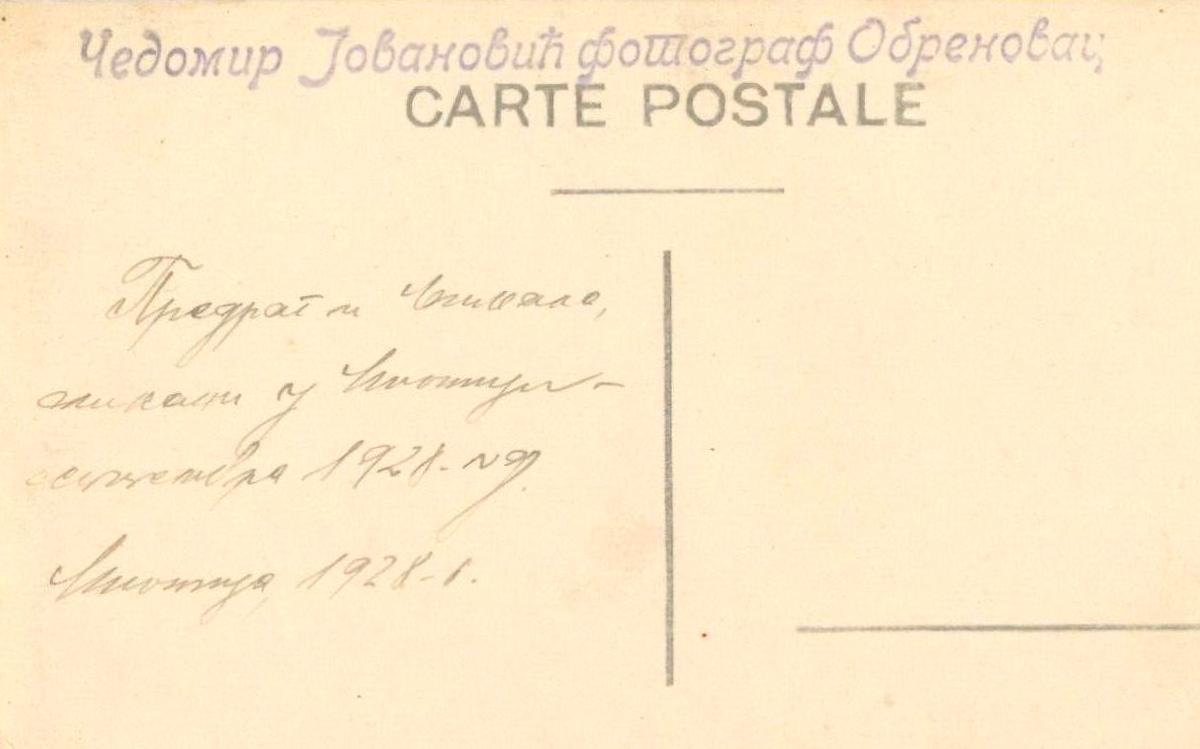 Чедомир Јовановић фотограф Обреновац
CARTE POSTALE
Предраг и
сликани у
септембра 1928. год.
1928. г.